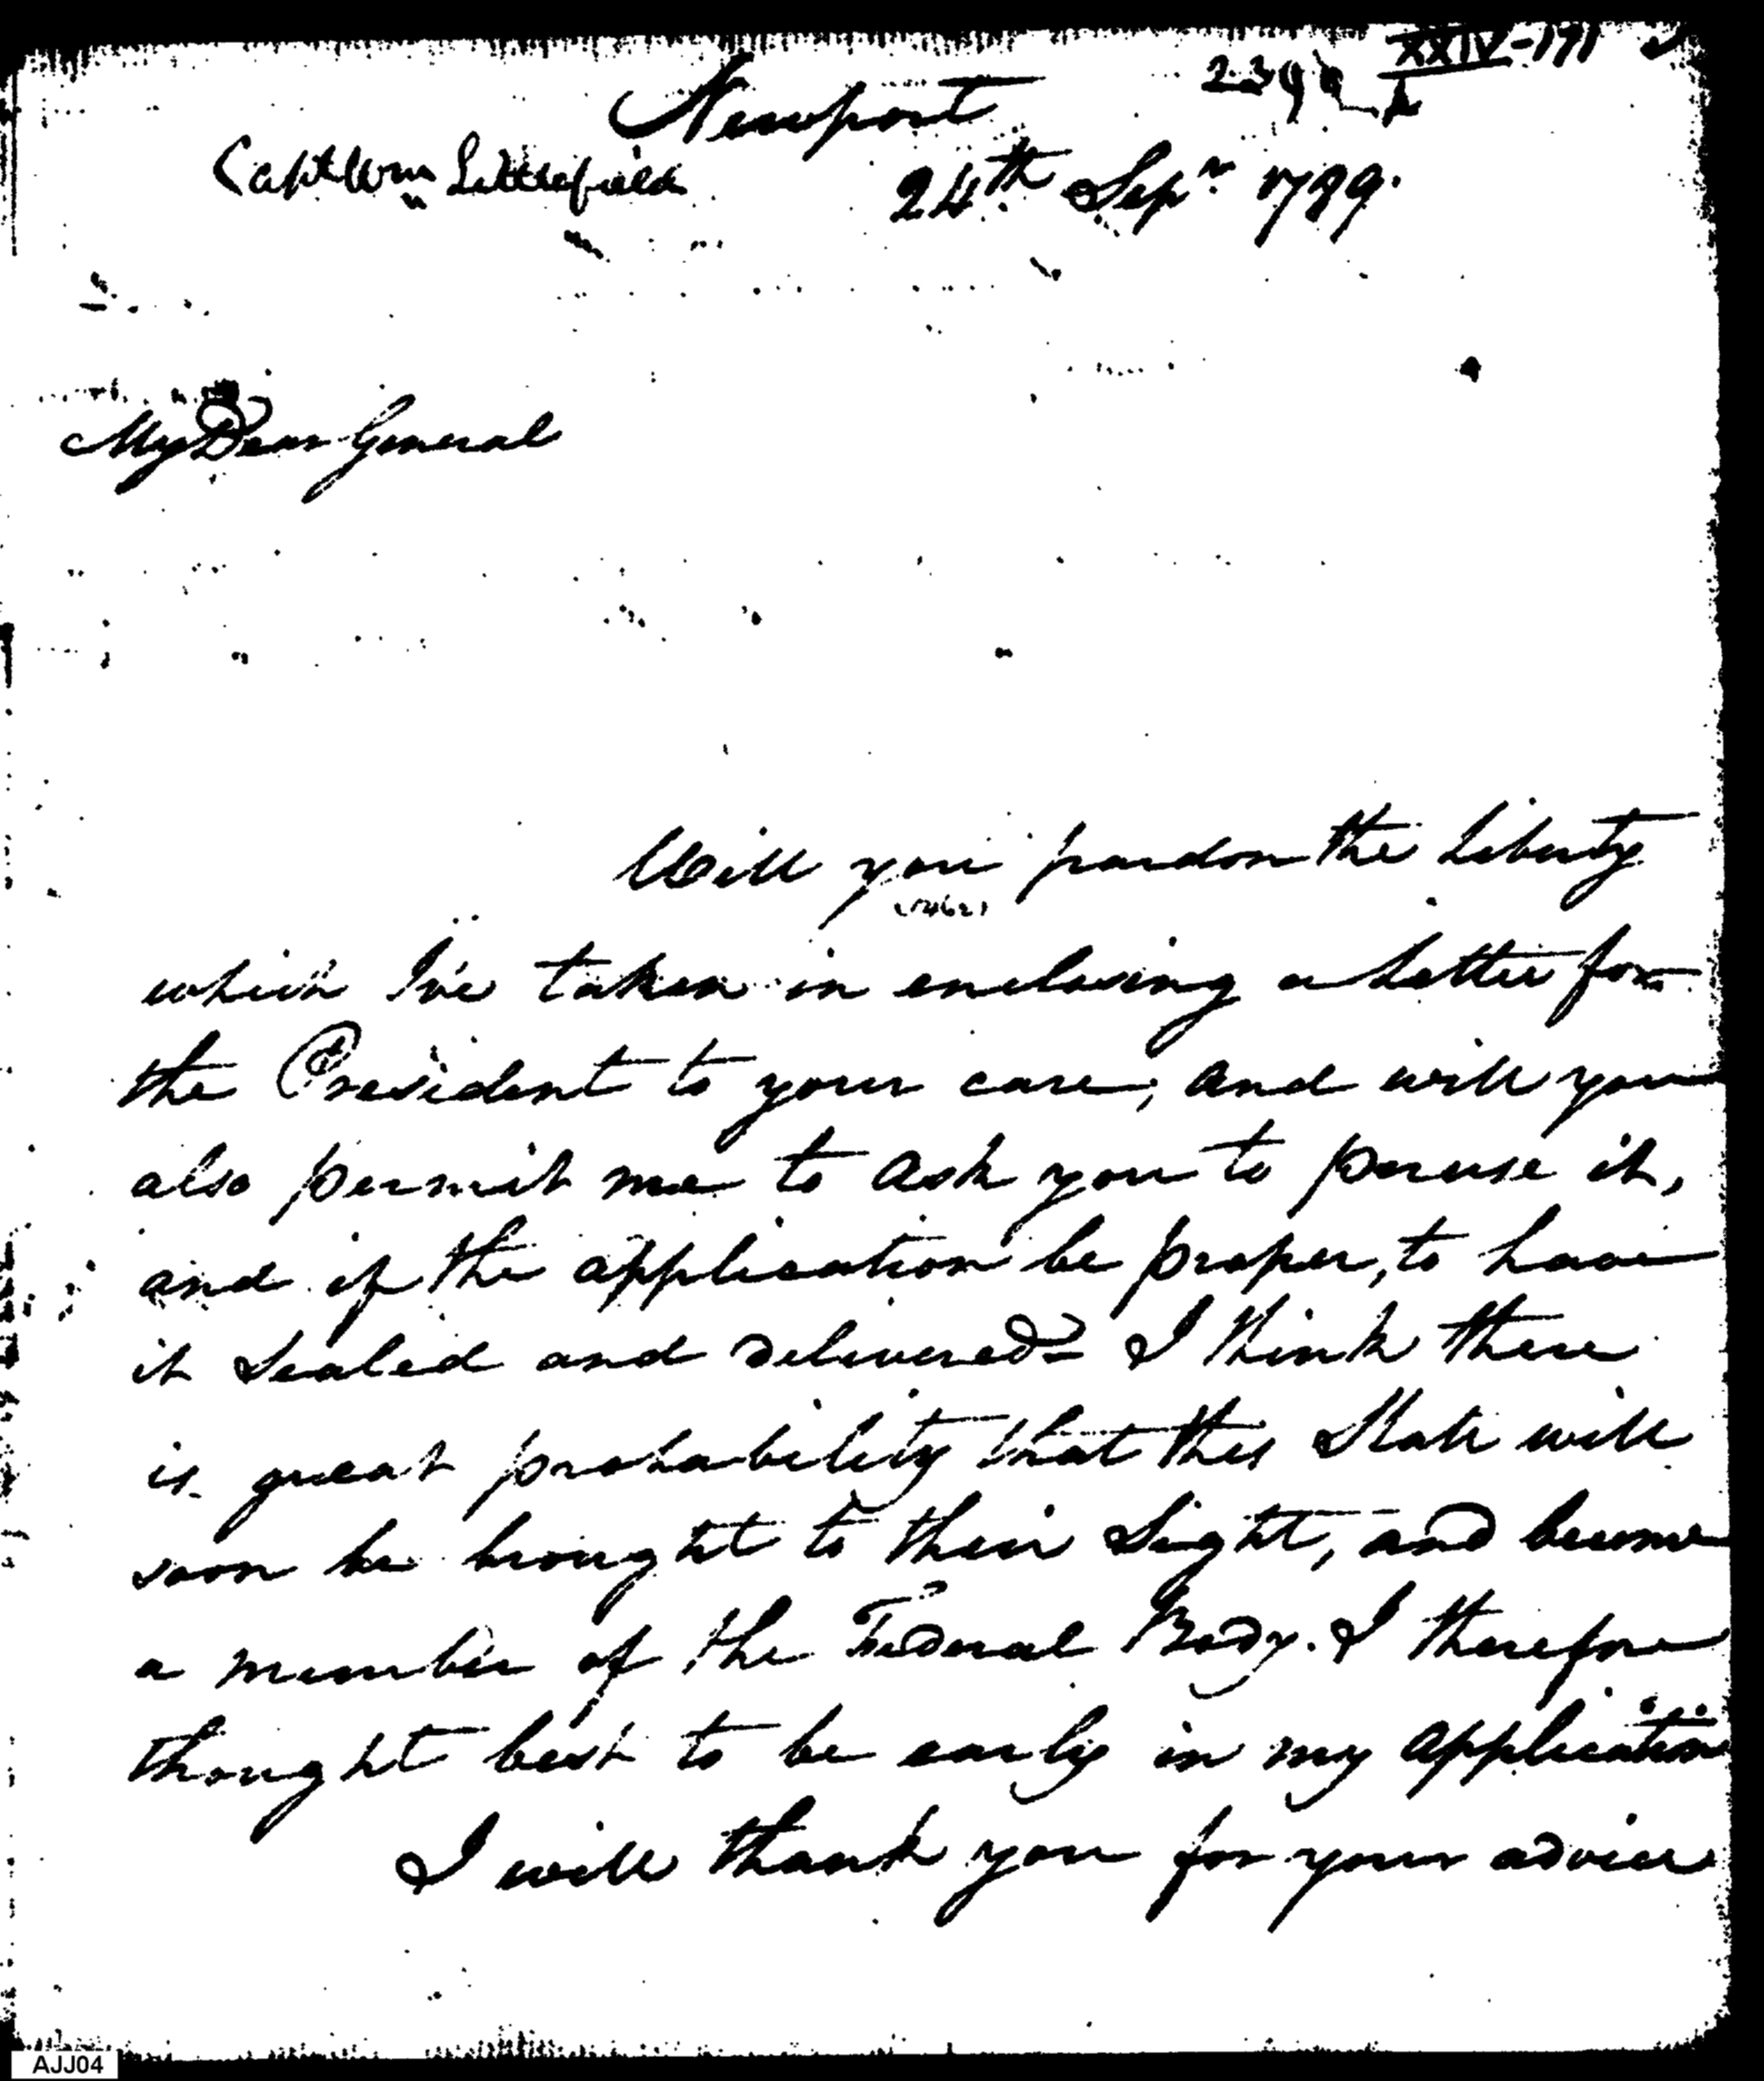 XXIV-191
Newport
Capt Wm Littlefield
24th Sepr 1789.
My Dear General
Will you pardon the liberty
which I've taken in enclosing a letter for
the President to your care, and will you
also permit me to ask you to peruse it,
and if the application be proper, to have
it sealed and delivered- I think there
is great probability that this State will
soon be brought to their Sight, and become
a member of the Federal Body. I therefore
thought best to be early in my application
I will thank you for your advice
AJJ04